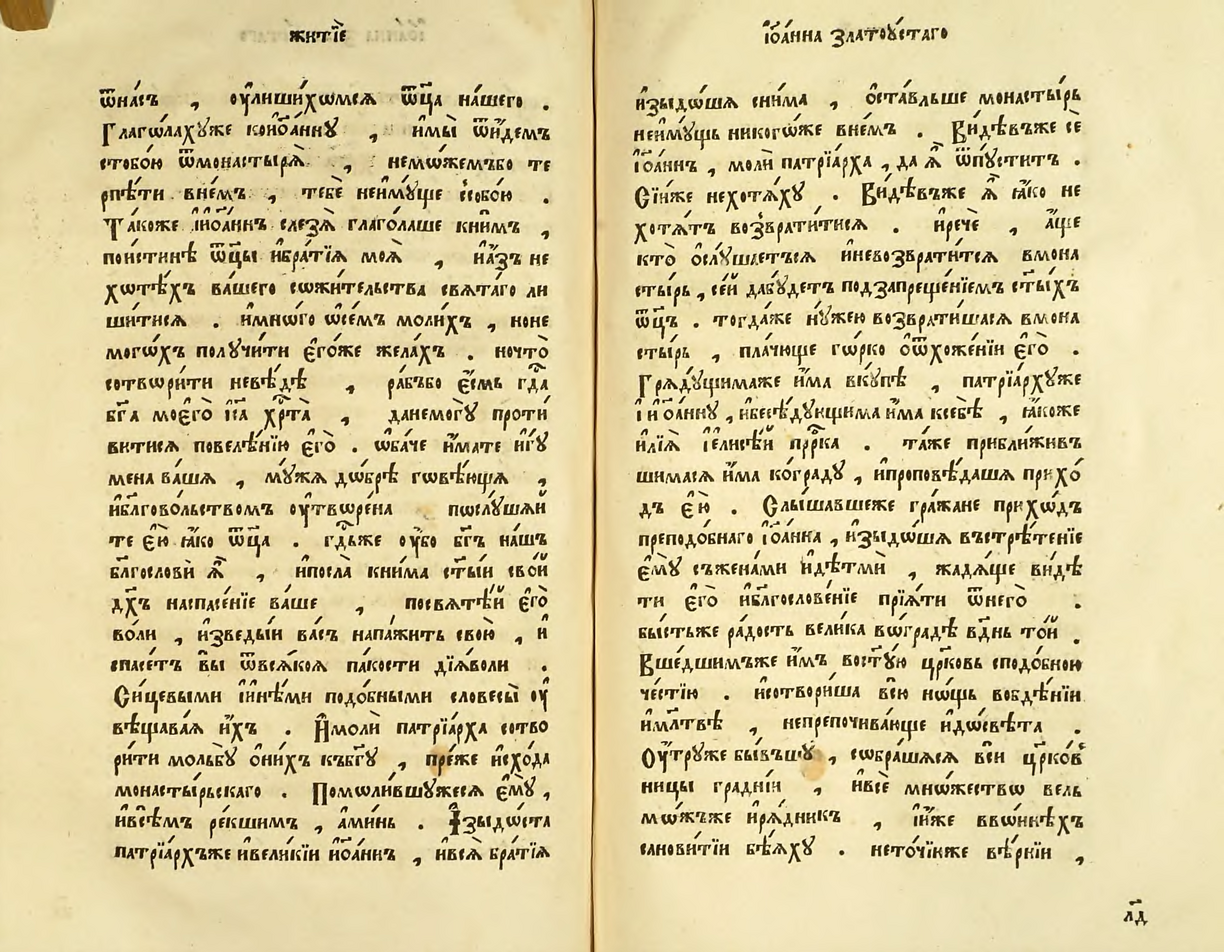 житїе
ѿна́съ , ᲂу҆лиши́хѡмсѧ ѿц҃а на́шего .
Глаго́лахꙋже коїѡа́ннꙋ , и҆мы̀ ѿи҆́демъ
стобо́ю ѿмонастырѧ̀ , немо́жемъбо те
рпѣ́ти вне́мъ , тебѐ неи҆мꙋ́ще ссобо́ю .
Та́коже и҆їѡа́ннъ слезѧ̀ глаго́лаше кни́мъ ,
пои́стиннѣ ѿцы̀ и҆бра́тїѧ моѧ̀ , и҆а҆́зъ не
хѡтѣ́хъ ва́шего сѡжи́тельства свѧта́го ли
ши́тисѧ . и҆мно́гѡ ѡ҆се́мъ моли́хъ , ноне
мого́хъ полꙋчи́ти є҆го́же жела́хъ . ночто̀
сотвѡри́ти невѣ́дѣ , ра́бъбо є҆́смь гд҃а
бг҃а моегѡ̀ і҆с҃а хр҃та̀ , данемогꙋ̀ проти
витисѧ повелѣ́нїю є҆гѡ̀ . ѻ҆ба́че и҆́мате и҆гꙋ
мена ва́шѧ , мꙋ́жѧ дѡ́брѣ гѡвѣ́ющѧ ,
и҆бл҃гово́льствомъ ᲂу҆твѡре́на пѡслꙋ́шаи
те є҆ю̀ ꙗ҆́ко ѿц҃а . гдⷭ҇ьже ᲂу҆́бо бг҃ъ на́шъ
бл҃гословѝ ѧ҆̀ , и҆посла̀ кни́ма ст҃ы́и сво́й
дх҃ъ наспасе́нїе ва́ше , посвѧтѣ́й є҆го̀
во́ли , и҆зведы́и ва́съ напа́жить свою̀ , и҆
спасе́тъ вы̀ ѿвсѧ́коѧ па́кости дїѧ́волѝ .
Си́цевыми і҆и҆нѣ́ми подо́бными словесы̀ ᲂу҆
вѣщава́ѧ и҆́хъ . И҆молѝ патрїа́рха сотво
ри́ти мольбꙋ̀ ѻ҆ни́хъ къбг҃ꙋ , пре́же и҆схо́да
монасты́рьскаго . Помѡли́вшꙋжесѧ є҆мꙋ̀ ,
и҆всѣ́мъ ре́кшимъ , а҆ми́нь . И҆зыдѡ́ста
патрїа́рхъже и҆вели́кїи и҆ѡа́ннъ , и҆всѧ̀ бра́тїѧ
і҆ѡа́нна златоꙋ́стаго
и҆зыдо́шѧ сни́ма , ѻ҆ста́вльше монасты́рь
неи҆мꙋ́щь никого́же вне́мъ . Ви́дѣвъже сѐ
і҆ѡа́ннъ , молѝ патрїа́рха , да ѧ҆̀ ѿпꙋ́ститъ .
Сі́иже нехотѧ́хꙋ . Ви́дѣвъже ѧ҆̀ ꙗ҆́ко не
хотѧ́тъ возврати́тисѧ . и҆речѐ , а҆́ще
кто̀ ѻ҆слꙋ́шаетъсѧ и҆невозврати́тсѧ вмона
сты́рь , се́й дабꙋ́детъ подзапреще́нїемъ ст҃ы́хъ
ѿц҃ъ . тогда́же нꙋ́жею возврати́шасѧ вмона
сты́рь , пла́чюще го́рко ѻ҆ѿхоже́нїи є҆гѡ̀ .
Грѧдꙋ́щимаже и҆́ма вкꙋ́пѣ , патрїа́рхꙋже
і҆ и҆ѡа́ннꙋ , и҆бесѣ́дꙋющима и҆́ма ксебѣ̀ , ꙗ҆́коже
и҆лїѧ̀ і҆елисѣ́и прⷪ҇рка . та́же прибли́живъ
шимасѧ и҆́ма ко́градꙋ , и҆проповѣ́дашѧ прихо́
дъ є҆ю̀ . Слы́шавшеже гра́жане прихо́дъ
преподо́бнаго і҆ѡа́нна , и҆зыдо́шѧ въстрѣ́тенїе
є҆мꙋ̀ съжена́ми и҆дѣтмѝ , жада́юще ви́дѣ
ти є҆го̀ и҆бл҃гослове́нїе прїѧ́ти ѿнего̀ .
бы́стьже ра́дость вели́ка вѡгра́дѣ вд҃нь то́й .
Вше́дшимъже и҆́мъ вост҃ꙋ́ю цр҃ковь сподо́бною
че́стїю . и҆сотвори́ша всю̀ но́щь вобдѣ́нїи
и҆мл҃твѣ , непрепочива́юще и҆досвѣ́та .
Оу҆́трꙋже бы́вьшꙋ , собра́шѧсѧ всѝ цр҃ко́в
ницы гра́днїи , и҆всѐ мно́жествѡ вель
мо́жъже и҆рѧ́дникъ , і҆и҆́же ввѡ́инѣхъ
санови́тїи бѣ́ѧхꙋ . неточїи́же вѣ́рнїи ,
л҃д